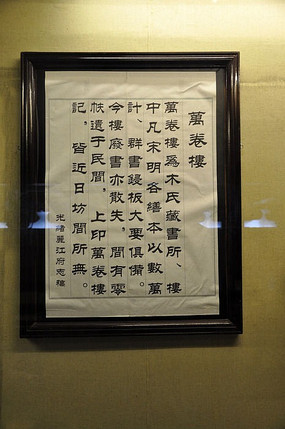 萬卷樓
萬卷樓為木氏藏書所、樓
中凡宋明各繕本以數萬
計、群書鋟板大要俱備。
今樓廢書亦散失，間有零
帙遺于民間，上印萬卷樓
記，皆近日坊間所無。
光緒麗江府志稿